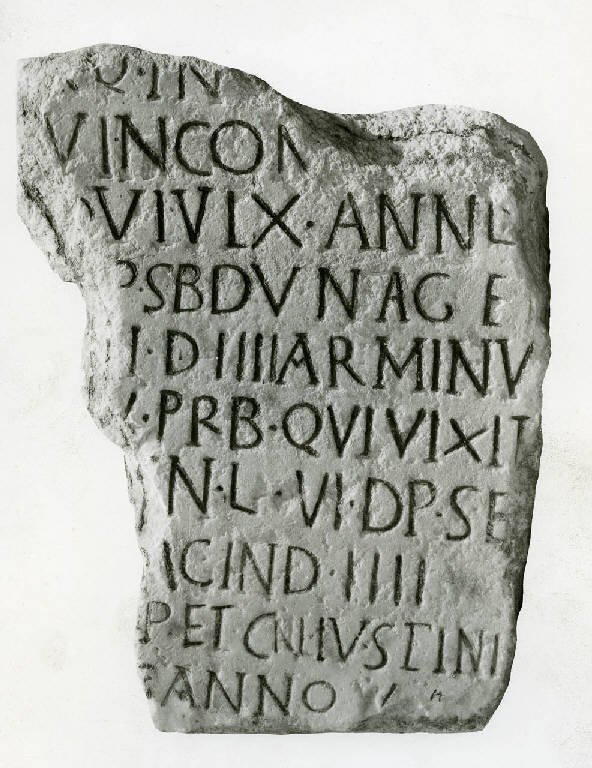 Q·IN
VI·NCON
QVIVIX·ANNL
P·SBDVNAGE
I·DIIIIARMINV
·PRB·QVIVIXIT
N·L·VI·DP·SE
ICIND·IIII
PETCNI·IVSTINI
ANNO